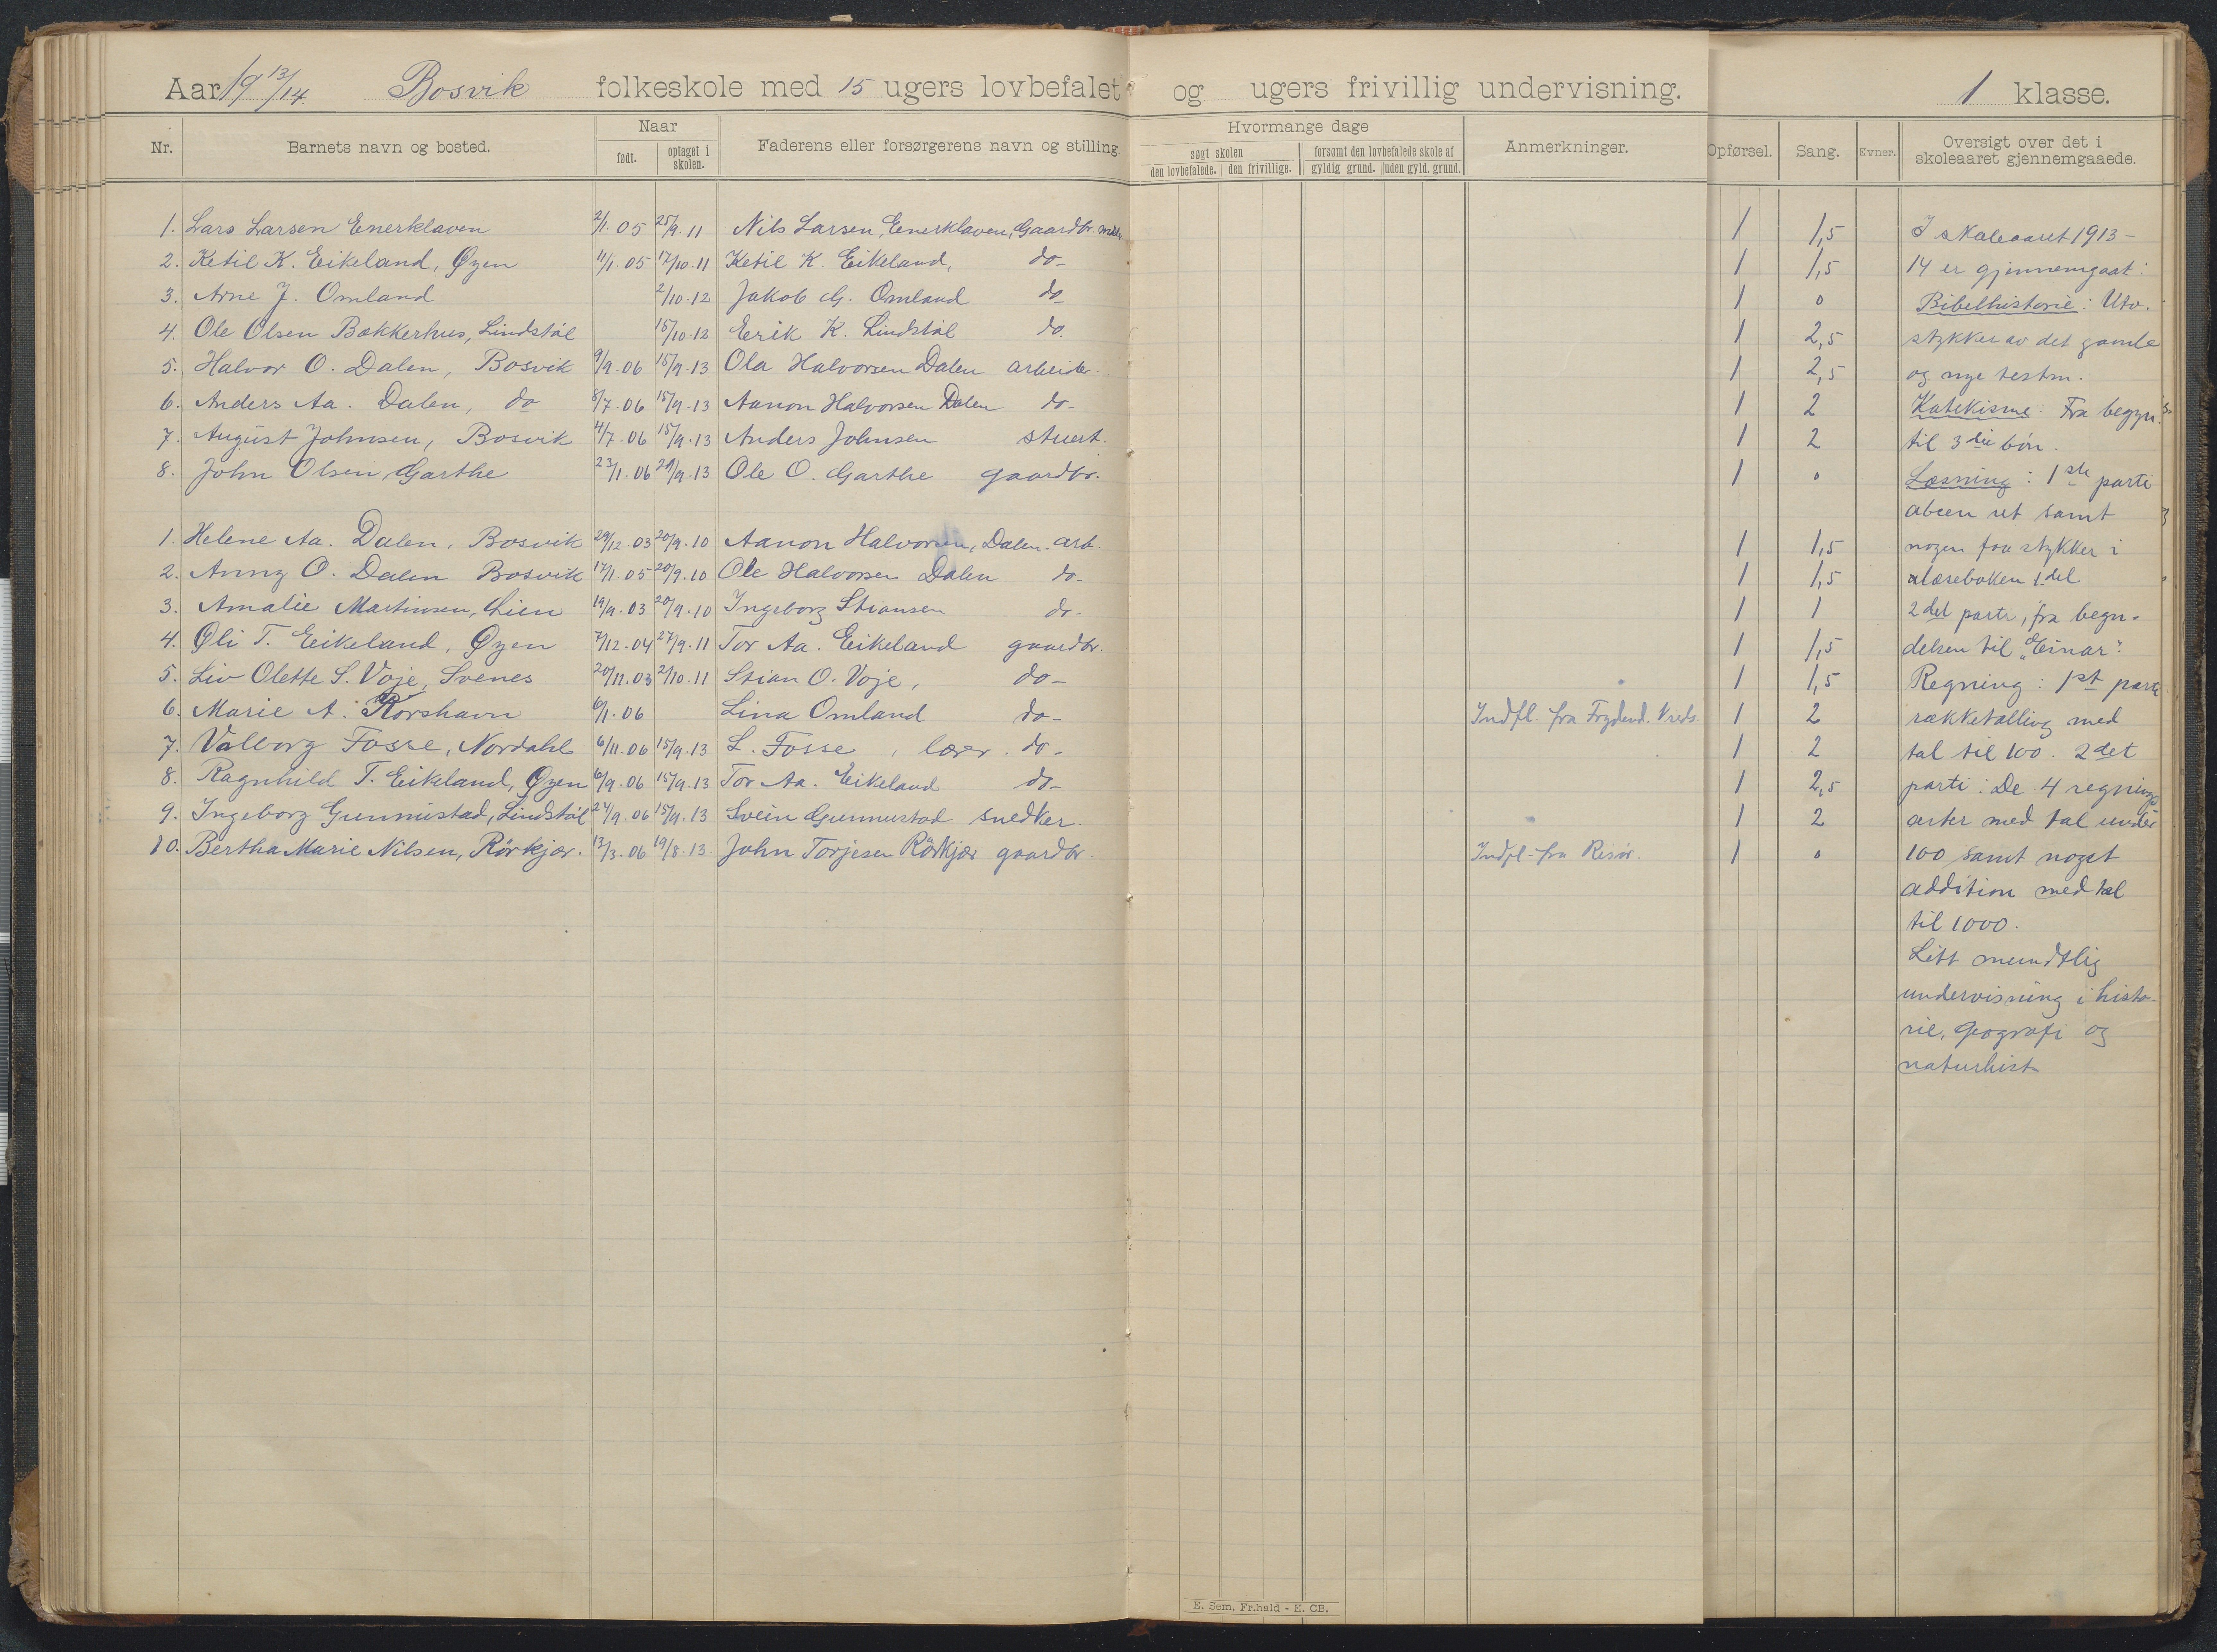 Aar 19 13/14. Bosvik folkeskole med 15 ugers lovbefalet og ugers frivillig undervisning. 1 klasse.
Nr. Barnets navn og bosted. Naar født. optaget i skolen. Faderens eller forsørgerens navn og stilling. Hvormange dage søgt skolen den lovbefalede. den frivillige. forsømt den lovbefalede skole af gyldig grund. uden gyld. grund. Anmerkninger. Opførsel. Sang. Evner. Oversigt over det i skoleaaret gjennemgaaede.
1. Lars Larsen Enerklaven 2/1. 05 25/9. 11 Nils Larsen, Enerklaven, Gaardbr. 1 1,5
2. Ketil K. Eikeland, Øyen 11/1. 05 17/10. 11 Ketil K. Eikeland, do- 1 1,5
3. Arne J. Omland 2/10. 12 Jakob G. Omland do 1 0
4. Ole Olsen Bakkerhus, Lindstøl 15/10. 12 Erik K. Lindstøl do. 1 2,5
5. Halvor O. Dalen, Bosvik 9/9. 06 15/9. 13 Ola Halvorsen Dalen arbeider. 1 2,5
6. Anders Aa. Dalen, do 8/7. 06 15/9. 13 Aanon Halvorsen Dalen do- 1 2
7. August Johnsen, Bosvik 4/7. 06 15/9. 13 Anders Johnsen stuert. 1 2
8. John Olsen, Garthe 23/1. 06 29/9. 13 Ole O. Garthe gaardbr. 1 0
1. Helene Aa. Dalen, Bosvik 29/12. 03 20/9. 10 Aanon Halvorsen, Dalen. arb. 1 1,5
2. Anny O. Dalen Bosvik 17/1. 05 20/9. 10 Ole Halvorsen Dalen do- 1 1,5
3. Amalie Martinsen, Lien 19/9. 03 20/9. 10 Ingeborg Stiansen do- 1 1
4. Oli T. Eikeland, Øyen 7/12. 04 27/9. 11 Tor Aa. Eikeland gaardbr. 1 1,5
5. Liv Olette S. Voje, Svenes 20/11. 03 2/10. 11 Stian O. Voje, do- 1 1,5
6. Marie A. Korshavn 6/1. 06 Lina Omland do- Indfl. fra Frydend. Vreds. 1 2
7. Valborg Fosse, Nordahl 6/11. 06 15/9. 13 L. Fosse, lærer. do- 1 2
8. Ragnhild T. Eikland, Øyen 6/9. 06 15/9. 13 Tor Aa. Eikeland do- 1 2,5
9. Ingeborg Gunnustad, Lindstøl 24/9. 06 15/9. 13 Svein Gunnustad snedker. 1 2
10. Bertha Marie Nilsen, Rörkjær. 13/3. 06 19/8. 13. John Torjesen Rörkjær gaardbr. Indfl. fra Risør. 1 0
I skoleaaret 1913-
14 er gjennemgaat:
Bibelhistorie: Utv.
stykker av det gamle
og nye testm.
Katekisme: Fra begyn.
til 3die bön.
Læsning: 1ste parti
abcen ut samt
nogen faa stykker i
læreboken 1. del
2det parti, fra begyn-
delsen til "Einar".
Regning: 1st parti
rækketælling med
tal til 100. 2det
parti: De 4 regnings
arter med tal under
100 samt noget
addition med tal
til 1000.
Litt mundtlig
undervisning i histo-
rie, geografi og
naturhist.
E. Sem, Fr.hald - E. CB.